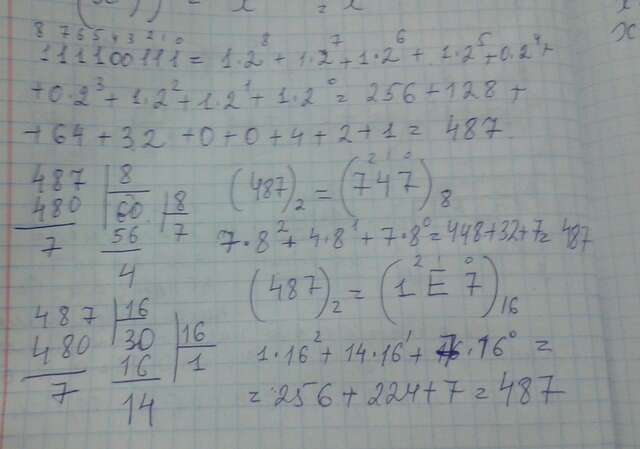 8 7 6 5 4 3 2 1 0
111100111 = 1·2⁸ + 1·2⁷ + 1·2⁶ + 1·2⁵ + 0·2⁴ +
+0·2³ + 1·2² + 1·2¹ + 1·2⁰ = 256 + 128 +
+64 + 32 + 0 + 0 + 4 + 2 + 1 = 487
487 | 8
480 | 60 | 8
7 56 7
4
(487)₂ = (747)₈
2 1 0
7·8² + 4·8¹ + 7·8⁰ = 448 + 32 + 7 = 487
487 | 16
480 | 30 | 16
7 16 1
14
(487)₂ = (1E7)₁₆
2 1 0
1·16² + 14·16¹ + 7·16⁰ =
= 256 + 224 + 7 = 487